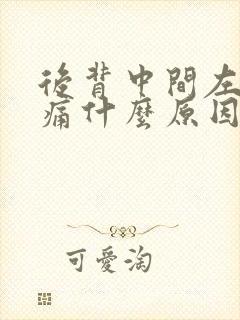 後背中間左
痛什麼原因
可愛淘